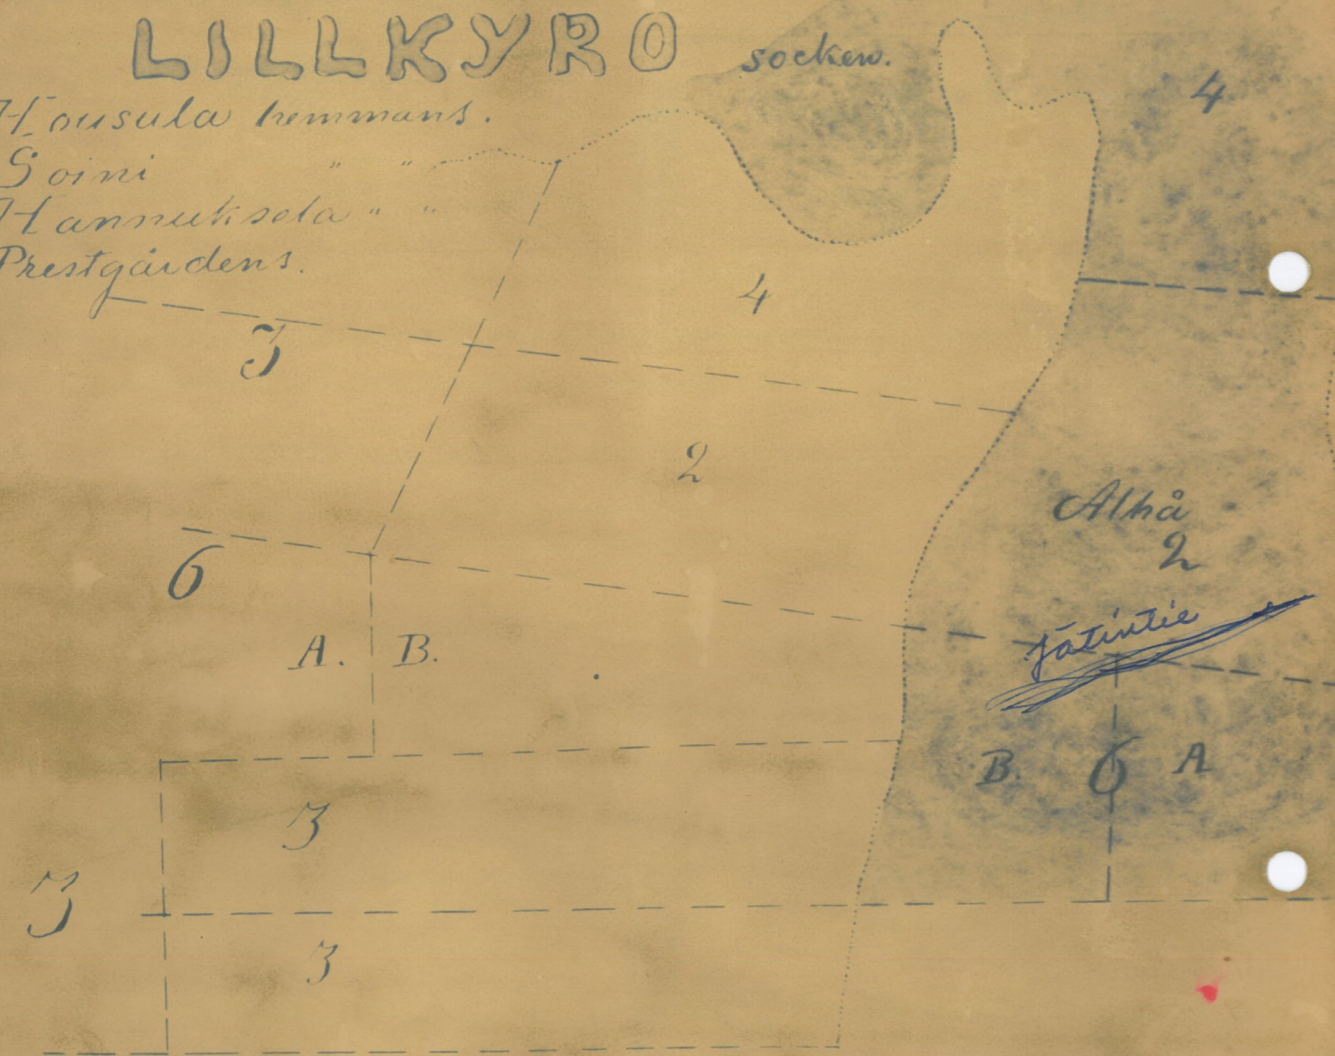 LILLKYRO socken.
Housula hemmans.
Soini " "
Hannuksela " "
Prestgårdens.
4
4
3
2
Alhå
2
6
Jätintie
A. B.
B. 6 A
3
3
3